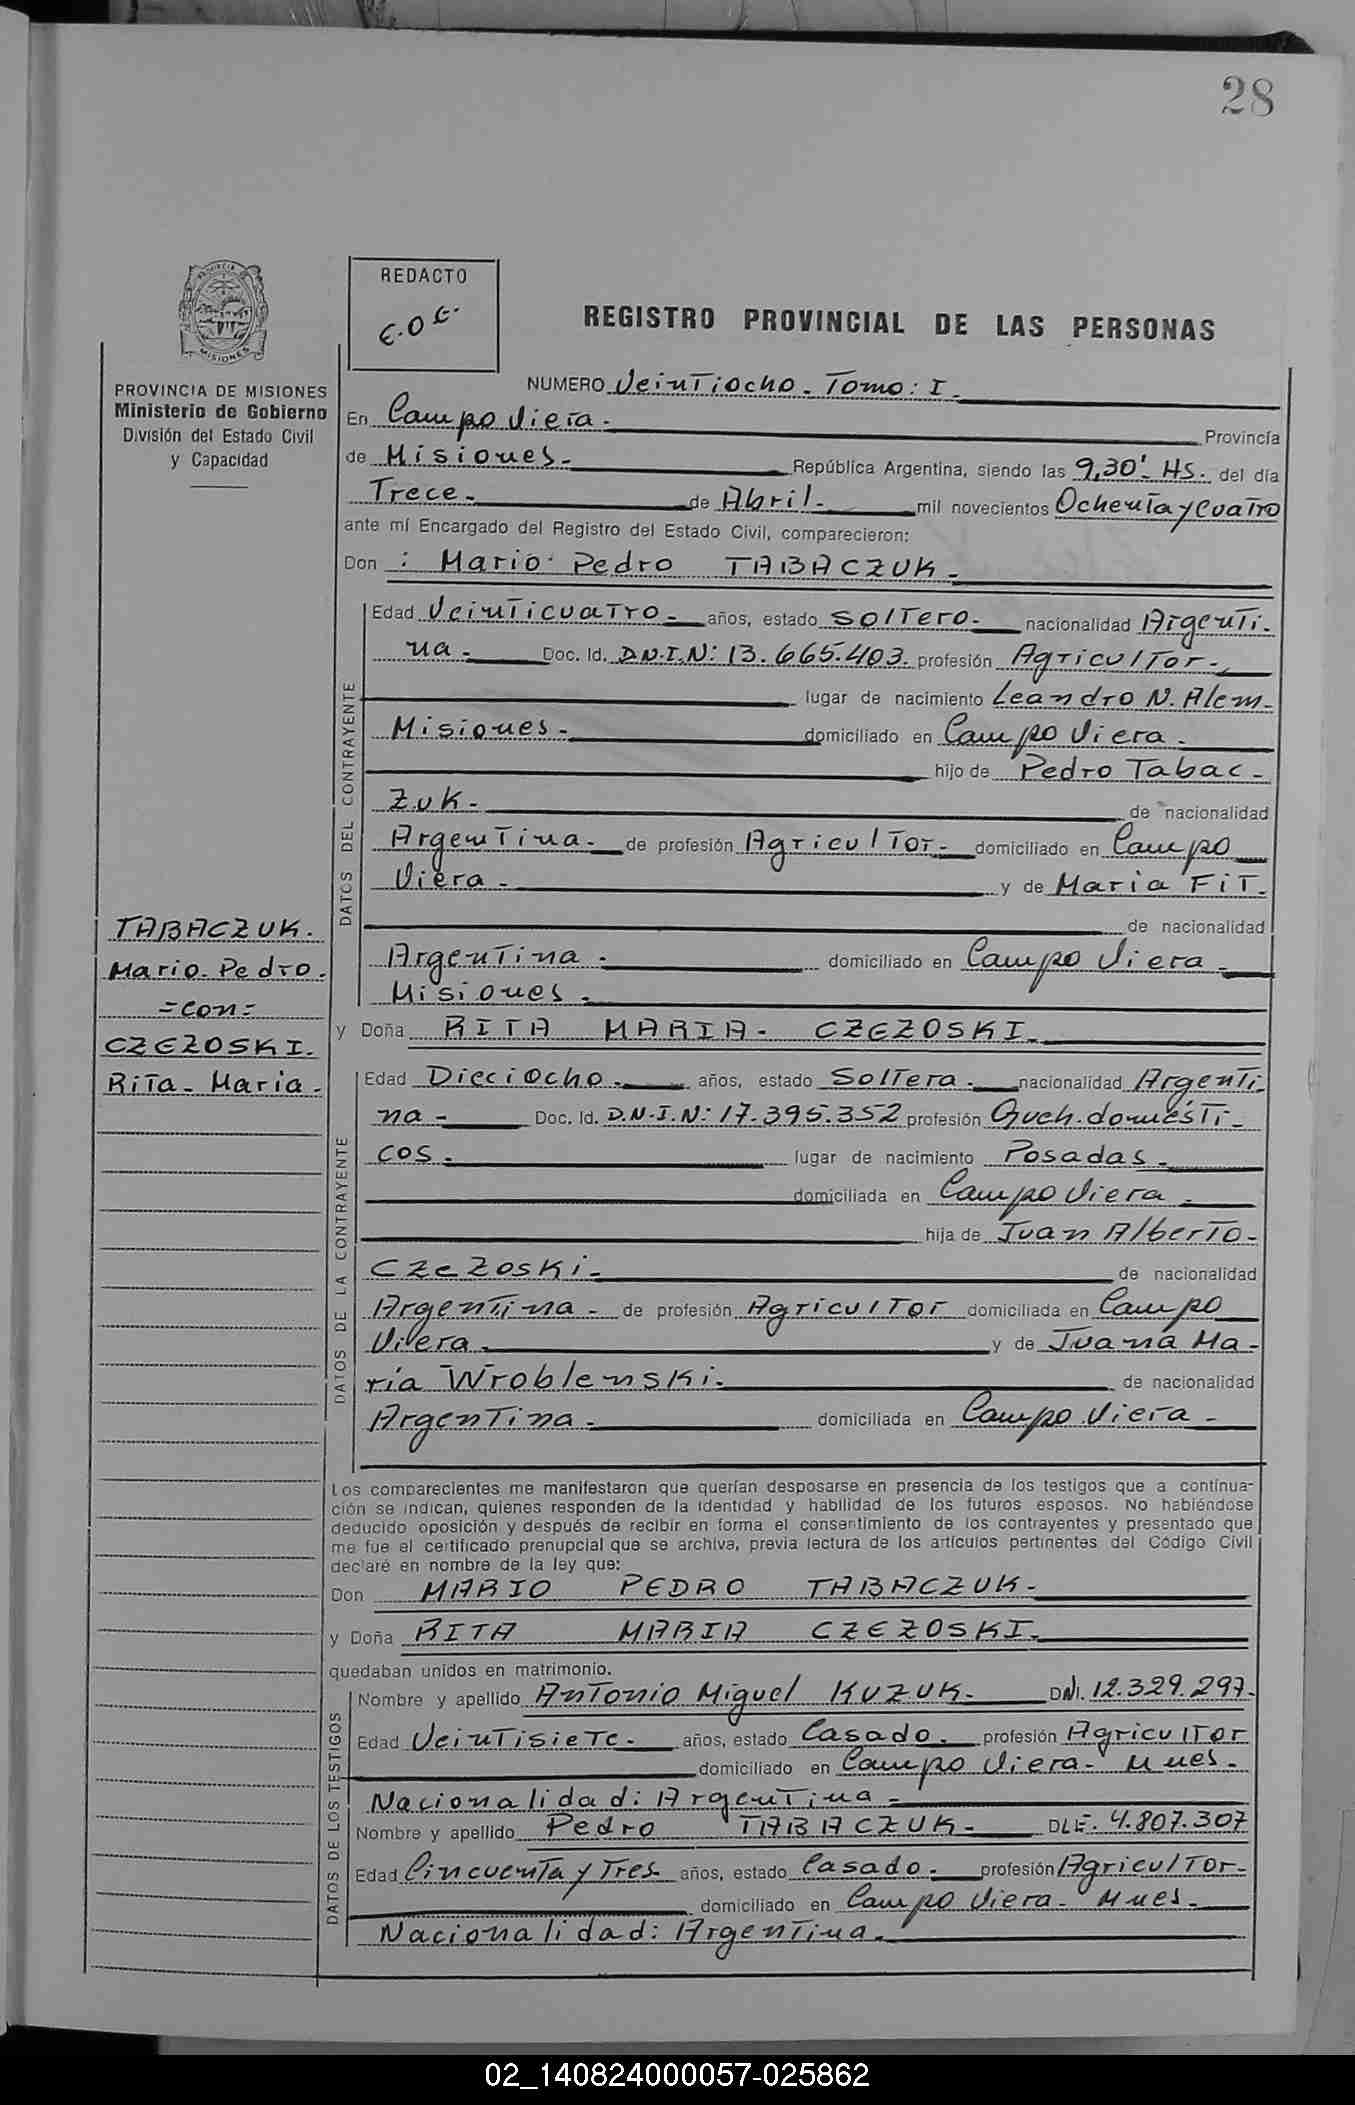 28
REDACTO
E.O.E.
REGISTRO PROVINCIAL DE LAS PERSONAS
PROVINCIA DE MISIONES
Ministerio de Gobierno
División del Estado Civil
y Capacidad
NUMERO Veintiocho. Tomo: I.
En Campo Viera. Provincia
de Misiones. República Argentina, siendo las 9,30' Hs. del día
Trece. de Abril. mil novecientos Ochenta y cuatro
ante mí Encargado del Registro del Estado Civil, comparecieron:
Don : Mario Pedro TABACZUK.
DATOS DEL CONTRAYENTE
Edad Veinticuatro. años, estado Soltero. nacionalidad Argenti-
na. Doc. Id. D.N.I.N: 13.665.403. profesión Agricultor.
lugar de nacimiento Leandro N. Alem.
Misiones. domiciliado en Campo Viera.
hijo de Pedro Tabac-
zuk. de nacionalidad
Argentina. de profesión Agricultor. domiciliado en Campo
Viera. y de Maria FiT.
de nacionalidad
Argentina. domiciliado en Campo Viera.
Misiones.
TABACZUK.
Mario Pedro.
=con=
CZEZOSKI.
Rita Maria.
y Doña RITA MARIA CZEZOSKI.
DATOS DE LA CONTRAYENTE
Edad Dieciocho. años, estado Soltera. nacionalidad Argenti-
na. Doc. Id. D.N.I.N: 17.395.352 profesión Queh. domésti-
cos. lugar de nacimiento Posadas.
domiciliada en Campo Viera.
hija de Juan Alberto
Czezoski. de nacionalidad
Argentina. de profesión Agricultor domiciliada en Campo
Viera. y de Juana Ma-
ria Wroblenski. de nacionalidad
Argentina. domiciliada en Campo Viera.
Los comparecientes me manifestaron que querían desposarse en presencia de los testigos que a continua-
ción se indican, quienes responden de la identidad y habilidad de los futuros esposos. No habiéndose
deducido oposición y después de recibir en forma el consentimiento de los contrayentes y presentado que
me fue el certificado prenupcial que se archiva, previa lectura de los artículos pertinentes del Código Civil
declaré en nombre de la ley que:
Don MARIO PEDRO TABACZUK.
y Doña RITA MARIA CZEZOSKI.
quedaban unidos en matrimonio.
DATOS DE LOS TESTIGOS
Nombre y apellido Antonio Miguel KUZUK. DNI. 12.329.297.
Edad Veintisiete. años, estado Casado. profesión Agricultor
domiciliado en Campo Viera. Mnes.
Nacionalidad: Argentina.
Nombre y apellido Pedro TABACZUK. DLE. 4.807.307
Edad Cincuenta y Tres años, estado Casado. profesión Agricultor.
domiciliado en Campo Viera. Mnes.
Nacionalidad: Argentina.
02_140824000057-025862